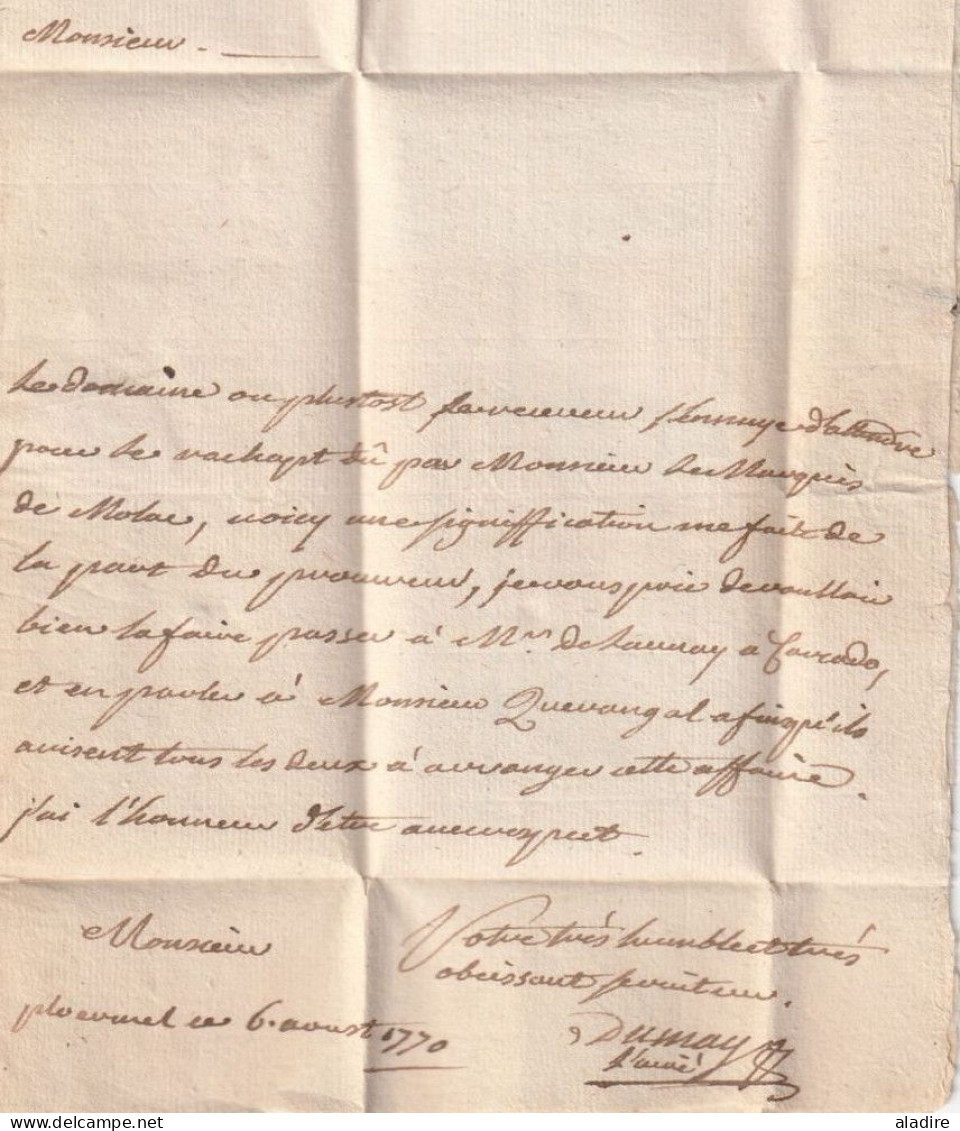 Monsieur.
Le domaine ou plustost le receveur s'ennuye d'attendre
pour le rachapt dû par Monsieur le Marquis
de Molac, voicy une signiffication me faite de
la part du procureur, je vous prie de voulloir
bien la faire passer à Mr. de Launay à
et en parler à Monsieur Quevangal afin qu'ils
avisent tous les deux à arranger cette affaire.
j'ai l'honneur d'etre avec respect.
Monsieur
Votre très humble et très
obeissant serviteur.
ploermel ce 6. aoust 1770
Dumay
L'ainé
aladire